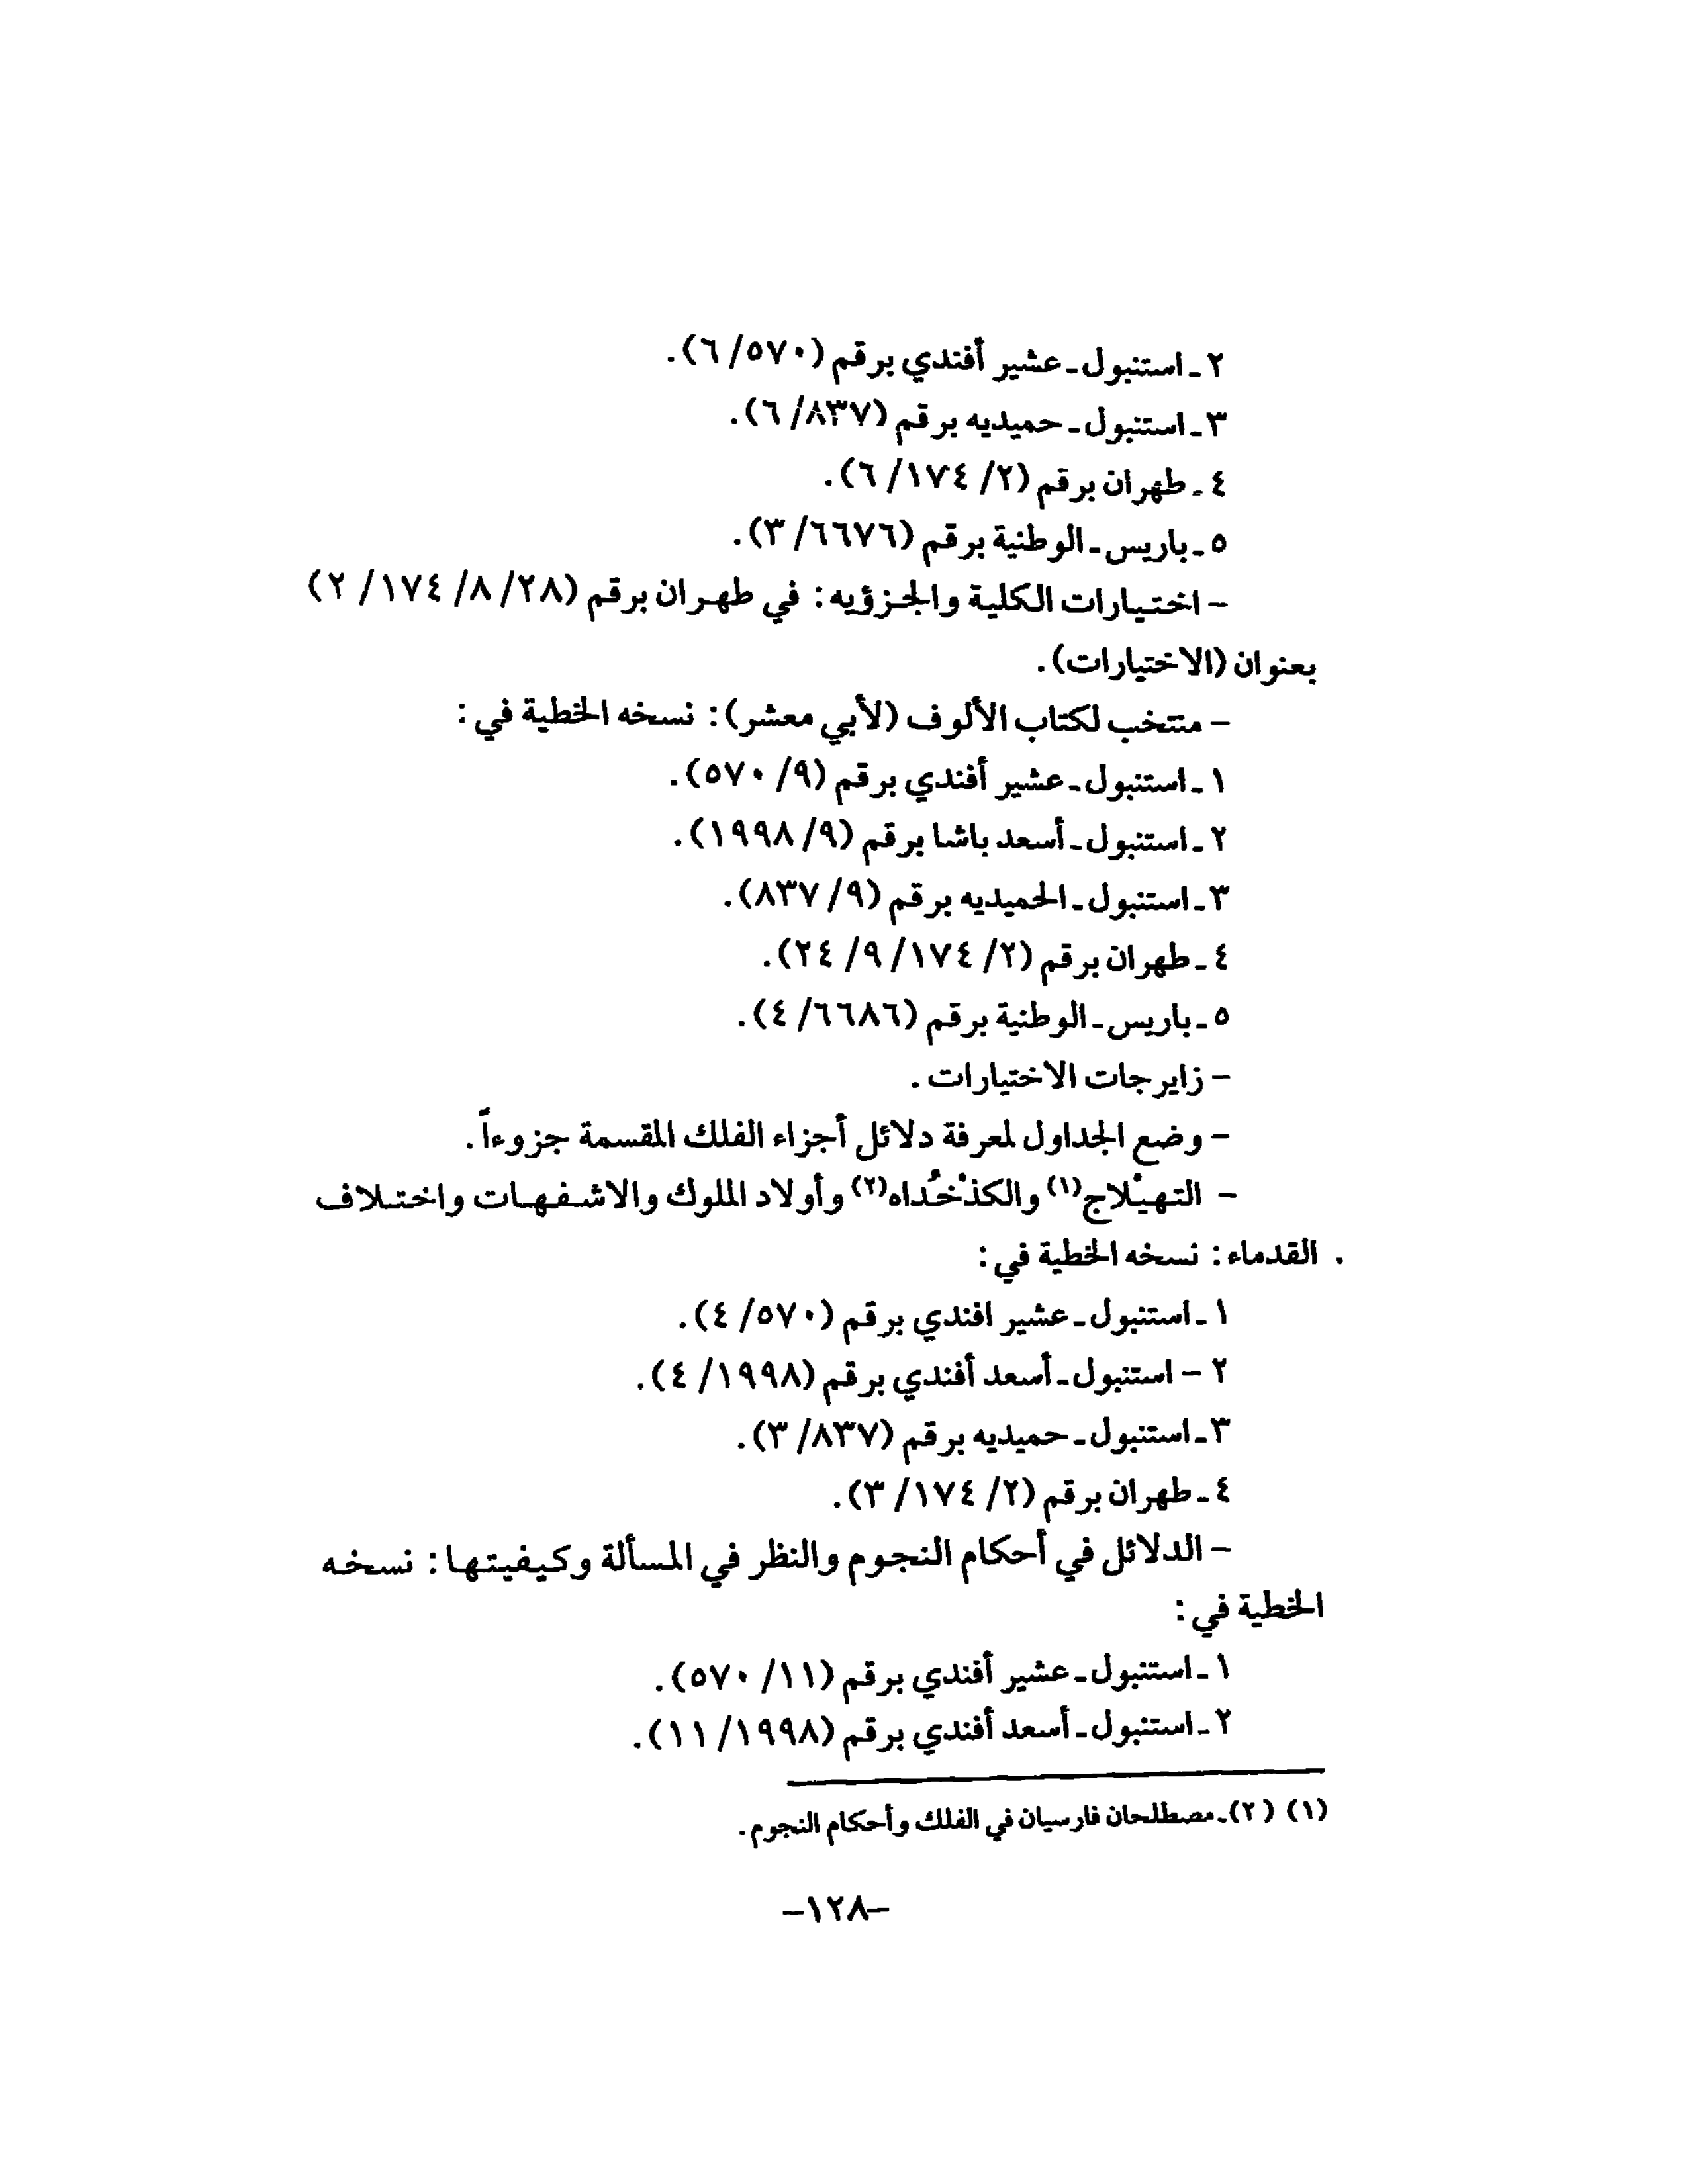 ٢ ـ استنبول ـ عشير أفندي برقم (٥٧٠/ ٦).
٣ ـ استنبول ـ حميديه برقم (٨٣٧/ ٦).
٤ ـ طهران برقم (٢/ ١٧٤/ ٦).
٥ ـ باريس ـ الوطنية برقم (٦٦٧٦/ ٣).
– اختيارات الكلية والجزؤيه: في طهران برقم (٢٨/ ٨/ ١٧٤/ ٢)
بعنوان (الاختيارات).
– منتخب لكتاب الألوف (لأبي معشر): نسخه الخطية في:
١ ـ استنبول ـ عشير أفندي برقم (٩/ ٥٧٠).
٢ ـ استنبول ـ أسعد باشا برقم (٩/ ١٩٩٨).
٣ ـ استنبول ـ الحميديه برقم (٩/ ٨٣٧).
٤ ـ طهران برقم (٢/ ١٧٤/ ٩/ ٢٤).
٥ ـ باريس ـ الوطنية برقم (٦٦٨٦/ ٤).
– زايرجات الاختيارات.
– وضع الجداول لمعرفة دلائل أجزاء الفلك المقسمة جزوءاً.
– التهيْلاج(١) والكذْخُداه(٢) وأولاد الملوك والاشفهات واختلاف
. القدماء: نسخه الخطية في:
١ ـ استنبول ـ عشير افندي برقم (٥٧٠/ ٤).
٢ – استنبول ـ أسعد أفندي برقم (١٩٩٨/ ٤).
٣ ـ استنبول ـ حميديه برقم (٨٣٧/ ٣).
٤ ـ طهران برقم (٢/ ١٧٤/ ٣).
– الدلائل في أحكام النجوم والنظر في المسألة وكيفيتها: نسخه
الخطية في:
١ ـ استنبول ـ عشير أفندي برقم (١١/ ٥٧٠).
٢ ـ استنبول ـ أسعد أفندي برقم (١٩٩٨/ ١١).
(١) (٢) ـ مصطلحان فارسيان في الفلك وأحكام النجوم.
–١٢٨–